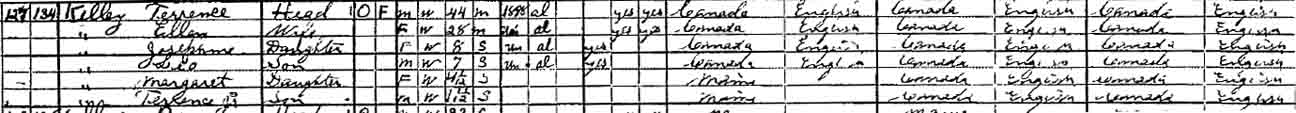 127 134 Kelley Terrence Head O F m W 44 m 1898 al yes yes Canada English Canada English Canada English
" Ellen Wife F W 28 m al yes yes Canada English Canada English Canada English
" Josephine Daughter F W 8 S un al yes Canada English Canada English Canada English
" Leo Son m W 7 S un al yes Canada English Canada English Canada English
" Margaret Daughter F W S Maine Canada English Canada English
" Terrence Son m W S Maine Canada English Canada English